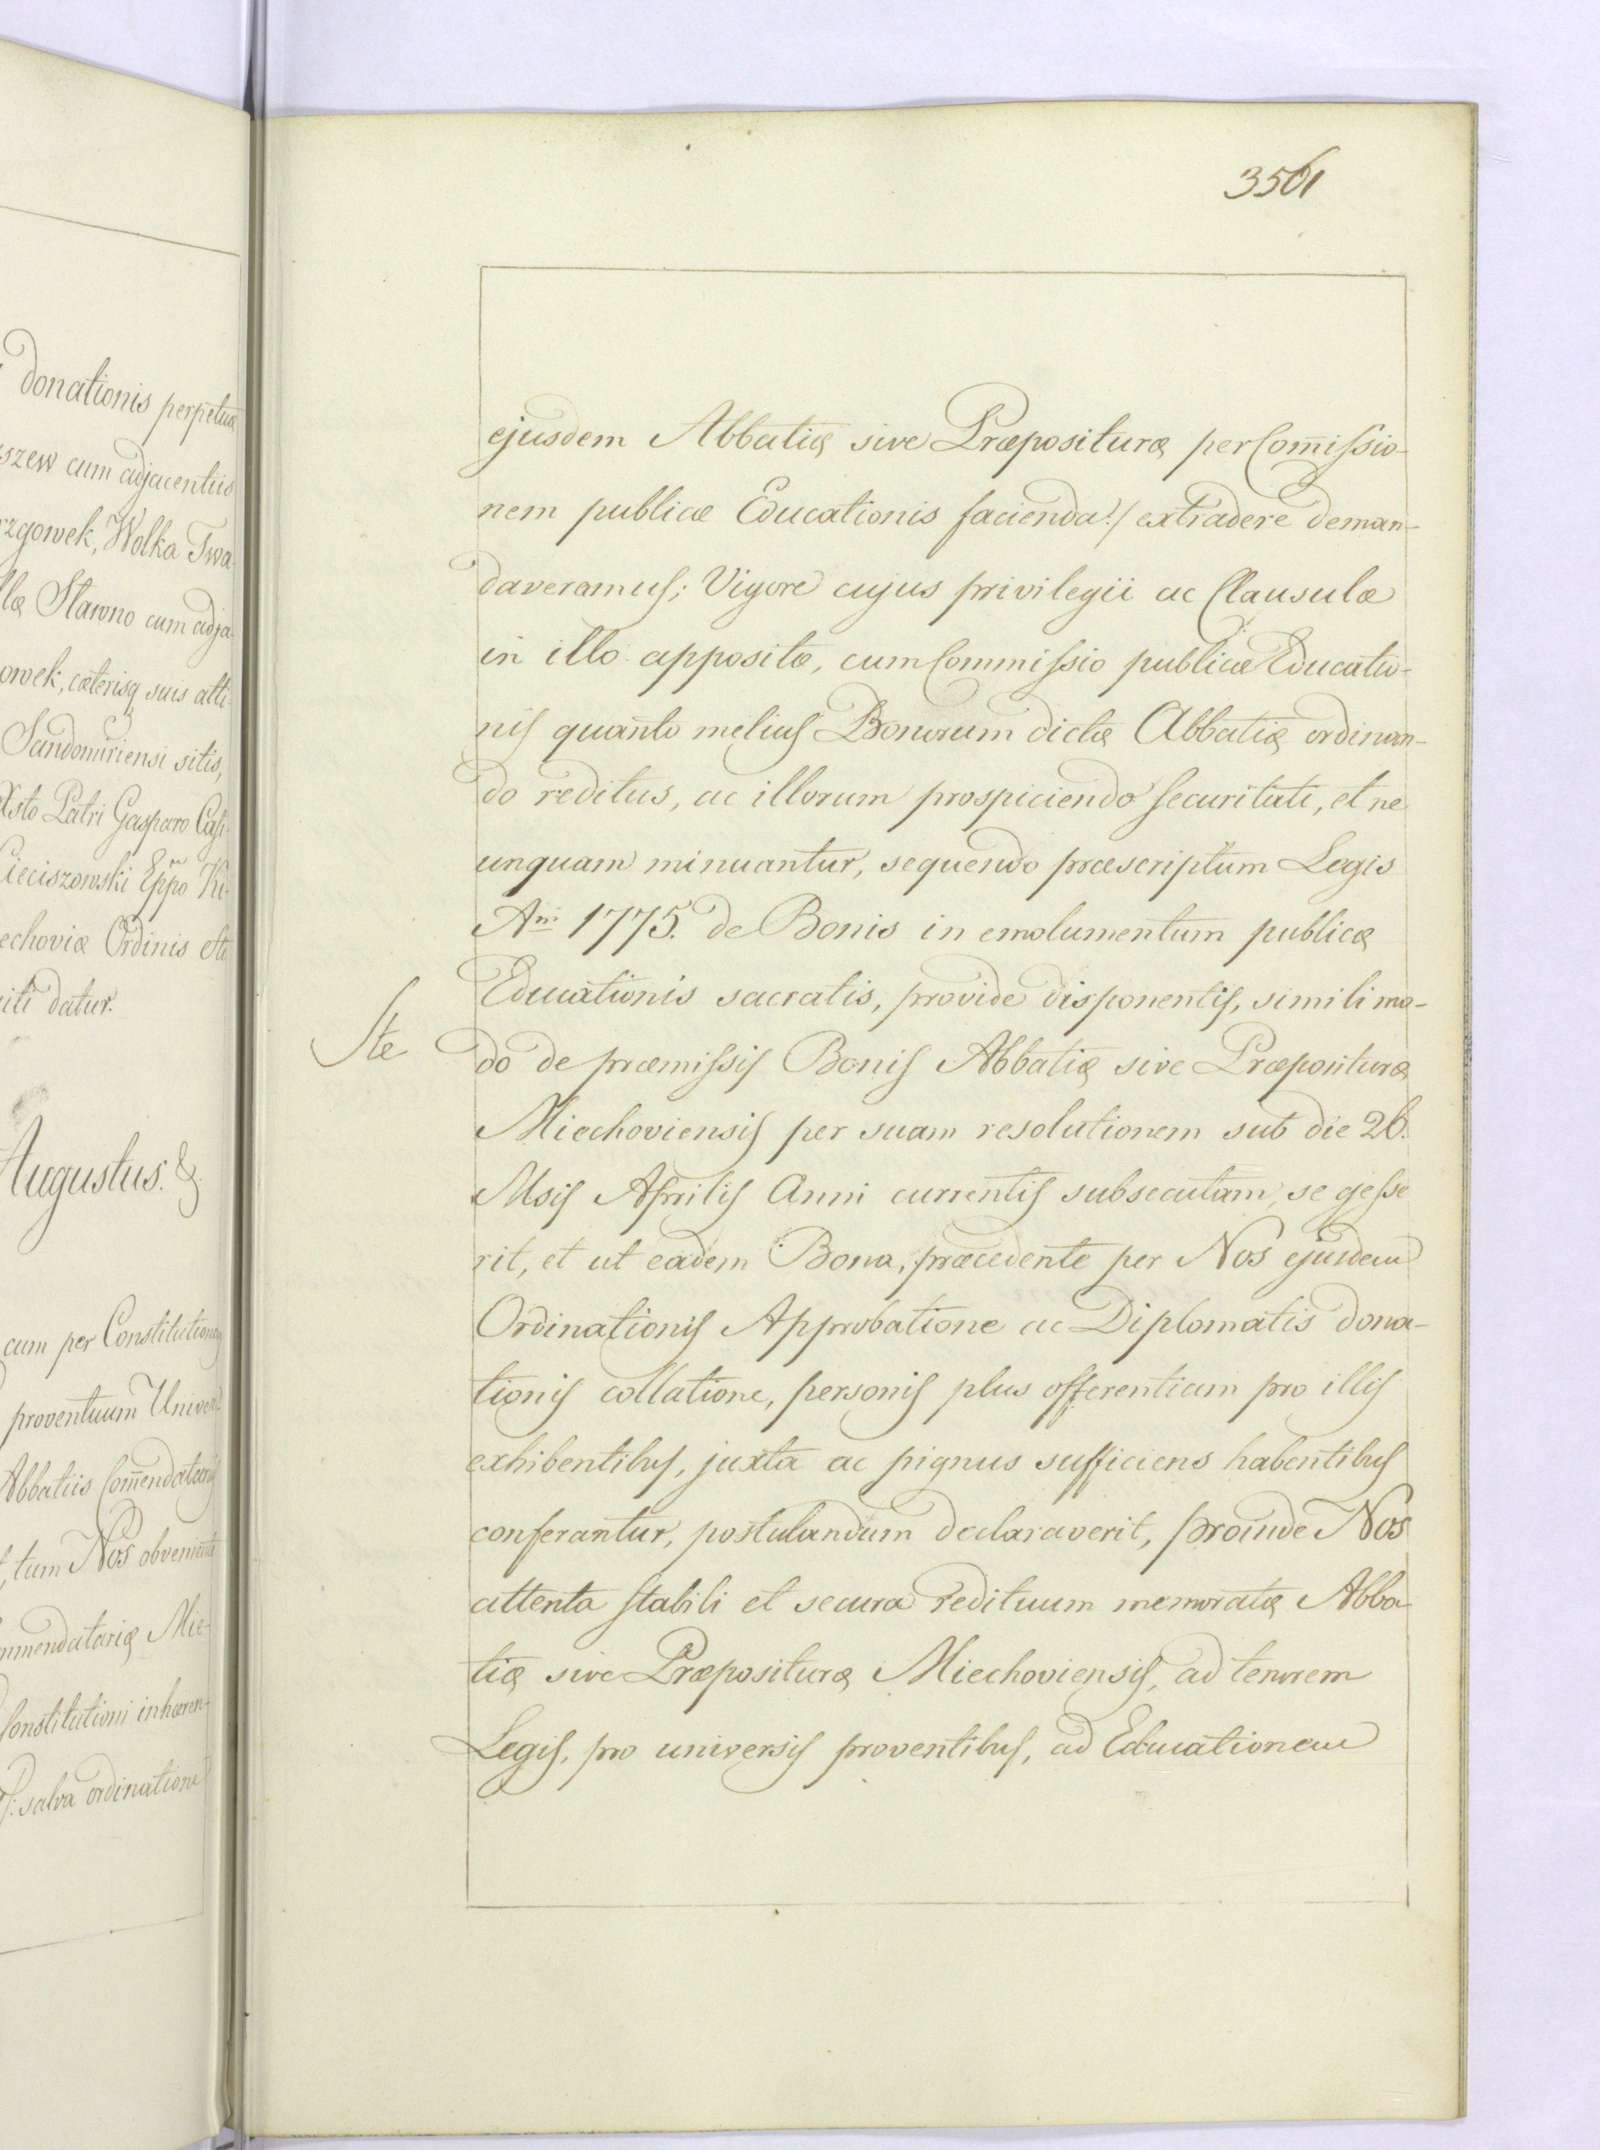 donationis perpetuæ
szew cum adjacentiis
rzgowek, Wolka Twa
læ Slawno cum adja-
owek, cæterisq suis atti-
Sandomiriensi sitis,
Xsto Patri Gasparo Casi-
Cieciszowski Eppo Ki-
echoviæ Ordinis
datur.
Augustus. &
cum per Constitutionem
proventuum
Abbatiis Comendatariis
, tum Nos
mmendatariæ Mie-
Constitutioni inhæren-
salva ordinatione
3561
ejusdem Abbatiæ sive Præposituræ per Comissio-
nem publicæ Educationis facienda:/ extradere deman-
daveramus; Vigore cujus privilegii ac Clausulæ
in illo appositæ, cum Commissio publicæ Educatio-
nis quanto melius Bonorum dictæ Abbatiæ ordinan-
do reditus, ac illorum prospiciendo securitati, et ne
unquam minuantur, sequendo præscriptum Legis
Ani 1775. de Bonis in emolumentum publicæ
Educationis sacratis, provide disponentis, simili mo-
Ste
do de præmissis Bonis Abbatiæ sive Præposituræ
Miechoviensis per suam resolutionem sub die 26.
Msis Aprilis Anni currentis subsecutam, se gesse
rit, et ut eadem Bona, præcedente per Nos ejusdem
Ordinationis Approbatione ac Diplomatis dona-
tionis collatione, personis plus offerentiam pro illis
exhibentibus, juxta ac pignus sufficiens habentibus
conferantur, postulandum declaraverit, proinde Nos
attenta stabili et secura redituum memoratæ Abba-
tiæ sive Præposituræ Miechoviensis, ad tenorem
Legis, pro universis proventibus, ad Educationem